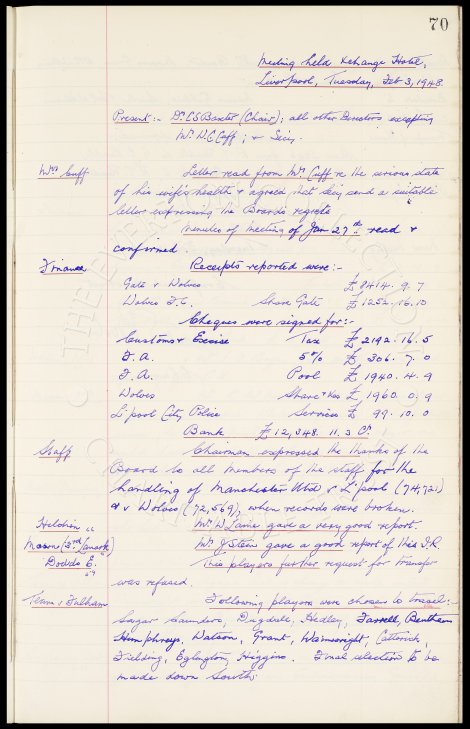 70
Meeting held Xchange Hotel,
Liverpool, Tuesday, Feb 3, 1948.
Present:- Dr C S Baxter (Chair); all other Directors excepting
Mr. W.C. Cuff; & Secy.
Mrs Cuff Letter read from Mr. Cuff re the serious state
of his wife's health & agreed that Secy send a suitable
letter expressing the Boards regrets
Minutes of Meeting of Jan 27th read &
confirmed.
Finance Receipts reported were:-
Gate v Wolves £8414. 9. 7
Wolves F.C. Share Gate £1252. 16. 10
Cheques were signed for:-
Customs & Excise Tax £2192. 16. 5
F.A. 5% £306. 7. 0
F.A. Pool £1940. 4. 9
Wolves Share + Exs £1960. 0. 9
L'pool City Police Services £99. 10. 0
Bank £12,348. 11. 3 Cr.
Staff Chairman expressed the thanks of the
Board to all members of the staff for the
handling of Manchester Utd v L'pool (74,721)
& v Wolves (72,569), when records were broken.
Mr W Laine gave a very good report.
Mason (3rd Lanark) Mr J Stein gave a good report of this I.R.
Dowds E. This players further request for transfer
was refused.
Team v Fulham Following players were chosen to travel:-
Sagar Saunders, Dugdale, Hedley, Farrell, Bentham
Humphreys, Watson, Grant, Wainwright, Catterick,
Fielding, Eglington, Higgins. Final selection to be
made down South.